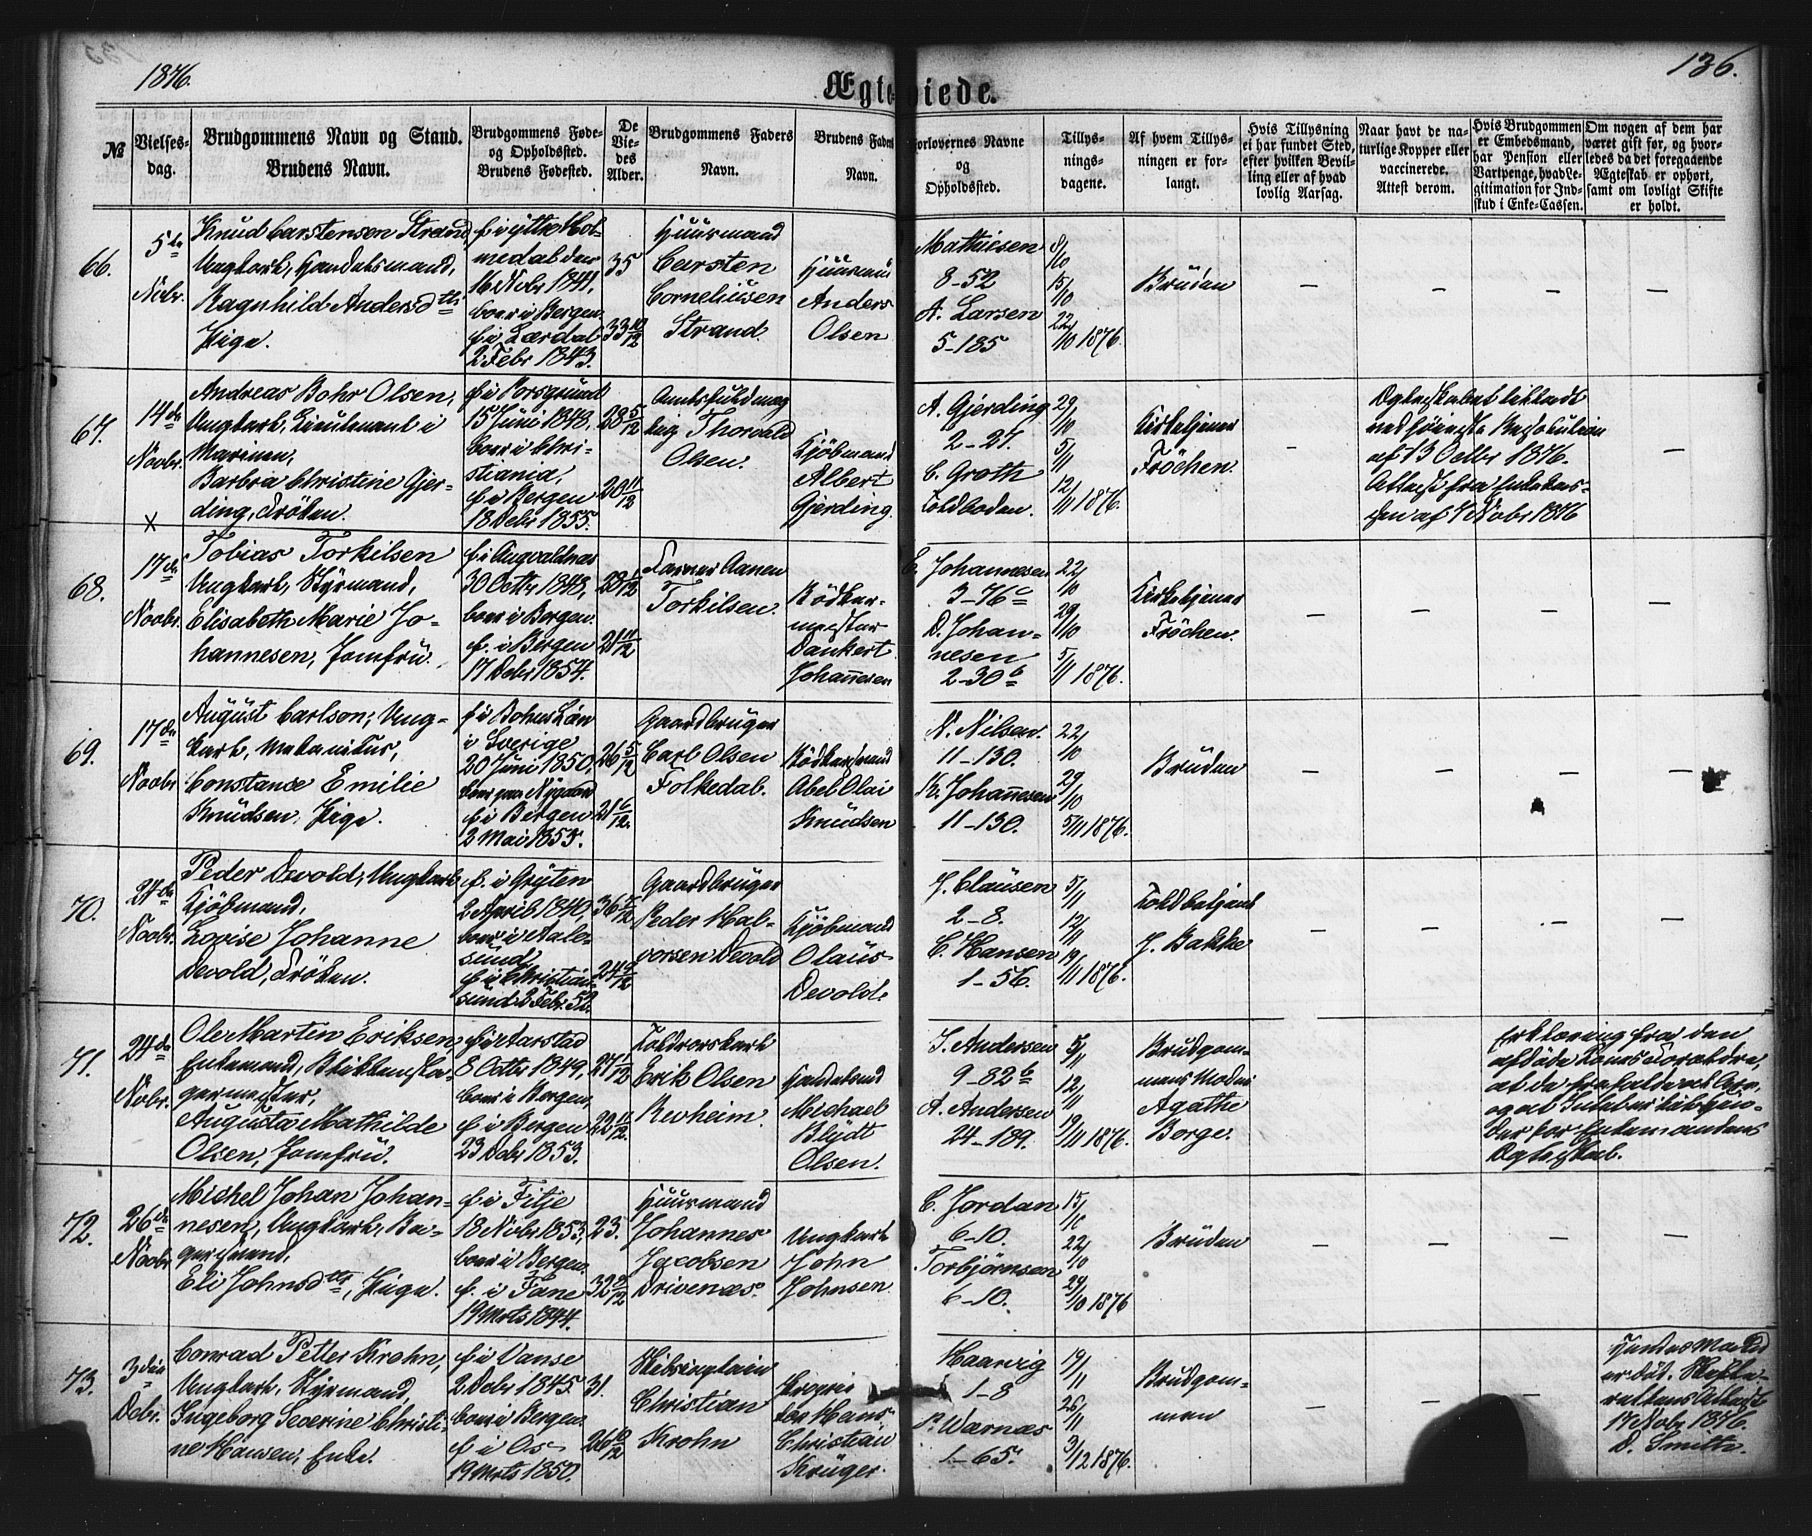 1876.
136.
Ægteviede.
№
Vielsesdag.
Brudgommens Navn og Stand.
Brudens Navn.
Brudgommens Føde-
og Opholdssted.
Brudens Fødested.
De
Vie-
des
Alder.
Brudgommens Faders
Navn.
Brudens Fad
Navn.
Forlovernes Navne
og
Opholdssted.
Tillys-
nings-
dagene.
Af hvem Tillys-
ningen er for-
langt.
Hvis Tillysning
ei har fundet Sted,
efter hvilken Bevil-
ling eller af hvad
lovlig Aarsag.
Naar havt de na-
turlige Kopper eller
vaccinerede.
Attest derom.
Hvis Brudgommen
er Embedsmand,
har Pension eller
Vartpenge, hvad Le-
gitimation for Ind-
skud i Enke-Cassen.
Om nogen af dem har
været gift før, og hvor-
ledes da det foregaaende
Ægteskab er ophørt,
samt om lovligt Skifte
er holdt.
66.
5te
Nobr.
Knud Carstensen Strand,
Ungkarl, Handelsmand,
Ragnhild Andersdtr
Pige.
f. i Yttre Hol-
medal den
16 Nobr 1841,
boer i Bergen
f. i Lærdal
2 Febr 1843.
35
33 10/12
Huusmand
Carsten
Corneliusen
Strand.
Huusman
Anders
Olsen
Mathiesen
8-52
A. Larsen
5-185
8/10
15/10
22/10 1876.
Bruden
67.
14de
Novbr.
Andreas Bohr Olsen,
Ungkarl, Lieutenant i
Marinen,
Barbra Christine Gjer-
ding, Frøken.
f. i Porsgrund
15 Juni 1848,
boer i Chri-
stiania,
f. i Bergen
18 Debr 1855.
28 5/12
20 11/12
Amtsfuldmæg
tig Thorvald
Olsen.
Kjöbmand
Albert
Gjerding.
A. Gjerding
2-27
C. Groth
Toldboden.
29/10
5/11
12/11 1876.
Kirketjener
Fröchen.
Ægteskabet tilladt
ved høieste Resolution
af 13 Octbr 1876.
Attest fra Enkekas-
sen af 4 Nobr 1876
68.
17de
Novbr.
Tobias Torkilsen
Ungkarl, Styrmand,
Elisabeth Marie Jo-
hannesen, Jomfru.
f. i Augvaldnæs
30 Octbr 1848,
boer i Bergen.
f. i Bergen
17 Debr 1854.
28 1/12
21 11/12
Farver Aanen
Torkilsen.
Bödker-
mester
Dankert
Johannesen
E. Johannesen
3-76c
D. Johan-
nesen
2-30b
22/10
29/10
5/11 1876.
Kirketjener
Fröchen.
69.
17de
Novbr
August Carlson, Ung-
karl, Mekanikus,
Constance Emilie
Knudsen, Pige.
f. i Bohus Län
i Sverige
20 Juni 1850,
boer paa Nygaard
f. i Bergen
2 Mai 1855.
26 5/12
21 6/12.
Gaardbruger
Carl Olsen
Folkedal.
Bödkersvend
Abel Olai
Knudsen
N. Nilsen.
11-130.
K. Johannesen
11-130.
22/10
29/10
5/11 1876.
Bruden
70.
24de
Novbr.
Peder Devold, Ungkarl
Kjöbmand,
Lovise Johanne
Devold, Frøken.
f. i Gryten
2 April 1840,
boer i Aale-
sund,
f. i Christian-
sund 2 Febr. 52.
36 7/12
24 9/12
Gaardbruger
Peder Hal-
vorsen Devold
Kjöbmand
Olaus
Devold.
J. Clausen
2-8.
C. Hansen
1-56.
5/11
12/11
19/11 1876.
Toldbetjent
J. Bakke
71.
24de
Nobr.
Ole Martin Eriksen
Enkemand, Blikkenslæ-
germester,
Augusta Mathilde
Olsen, Jomfru.
f. i Aarstad
8 Octbr 1849,
boer i Bergen,
f. i Bergen
23 Debr 1853.
27 1/12
22 11/12.
Toldrorskarl
Erik Olsen
Revheim.
Handelsmd
Michael
Blydt
Olsen.
I. Andersen
9-82b
A. Andersen
24-189.
5/11
12/11
19/11 1876.
Brudgom-
mens Moder
Agathe
Borge.
Erklæring fra den
afdöde Kones Forældre,
at de frafalder al Arv,
og at Intet er til Hin-
der for Enkemandens
Ægteskab.
72.
26de
Novbr
Michel Johan Johan-
nesen, Ungkarl, Ba-
gersvend,
Eli Johnsdtr, Pige.
f. i Fitje
18 Nobr 1853,
boer i Bergen.
f. i Fane
19 Marts 1844.
23.
32 8/12
Huusmand
Johannes
Jacobsen
Drivenæs.
Ungkarl
John
Johnsen
C. Jordan
6-10.
Torbjörnsen
6-10.
15/10
22/10
29/10 1876
Bruden
73.
3die
Debr.
Conrad Petter Krohn,
Ungkarl, Styrmand,
Ingeborg Severine Christi-
ne Hansen, Enke.
f. i Vanse
2 Debr 1845.
boer i Bergen
f. i Os
19 Marts 1850.
31.
26 8/12
Skibscaptain
Christian
Krohn
Hans
Christian
Krüger.
Haarvig
1-8
P. Warnæs
1-65.
19/11
26/11
3/12 1876.
Brudgom-
men
Hendes Mand
er död. Skifte-
rettens Attest
17 Nobr 1876.
D. Smith.